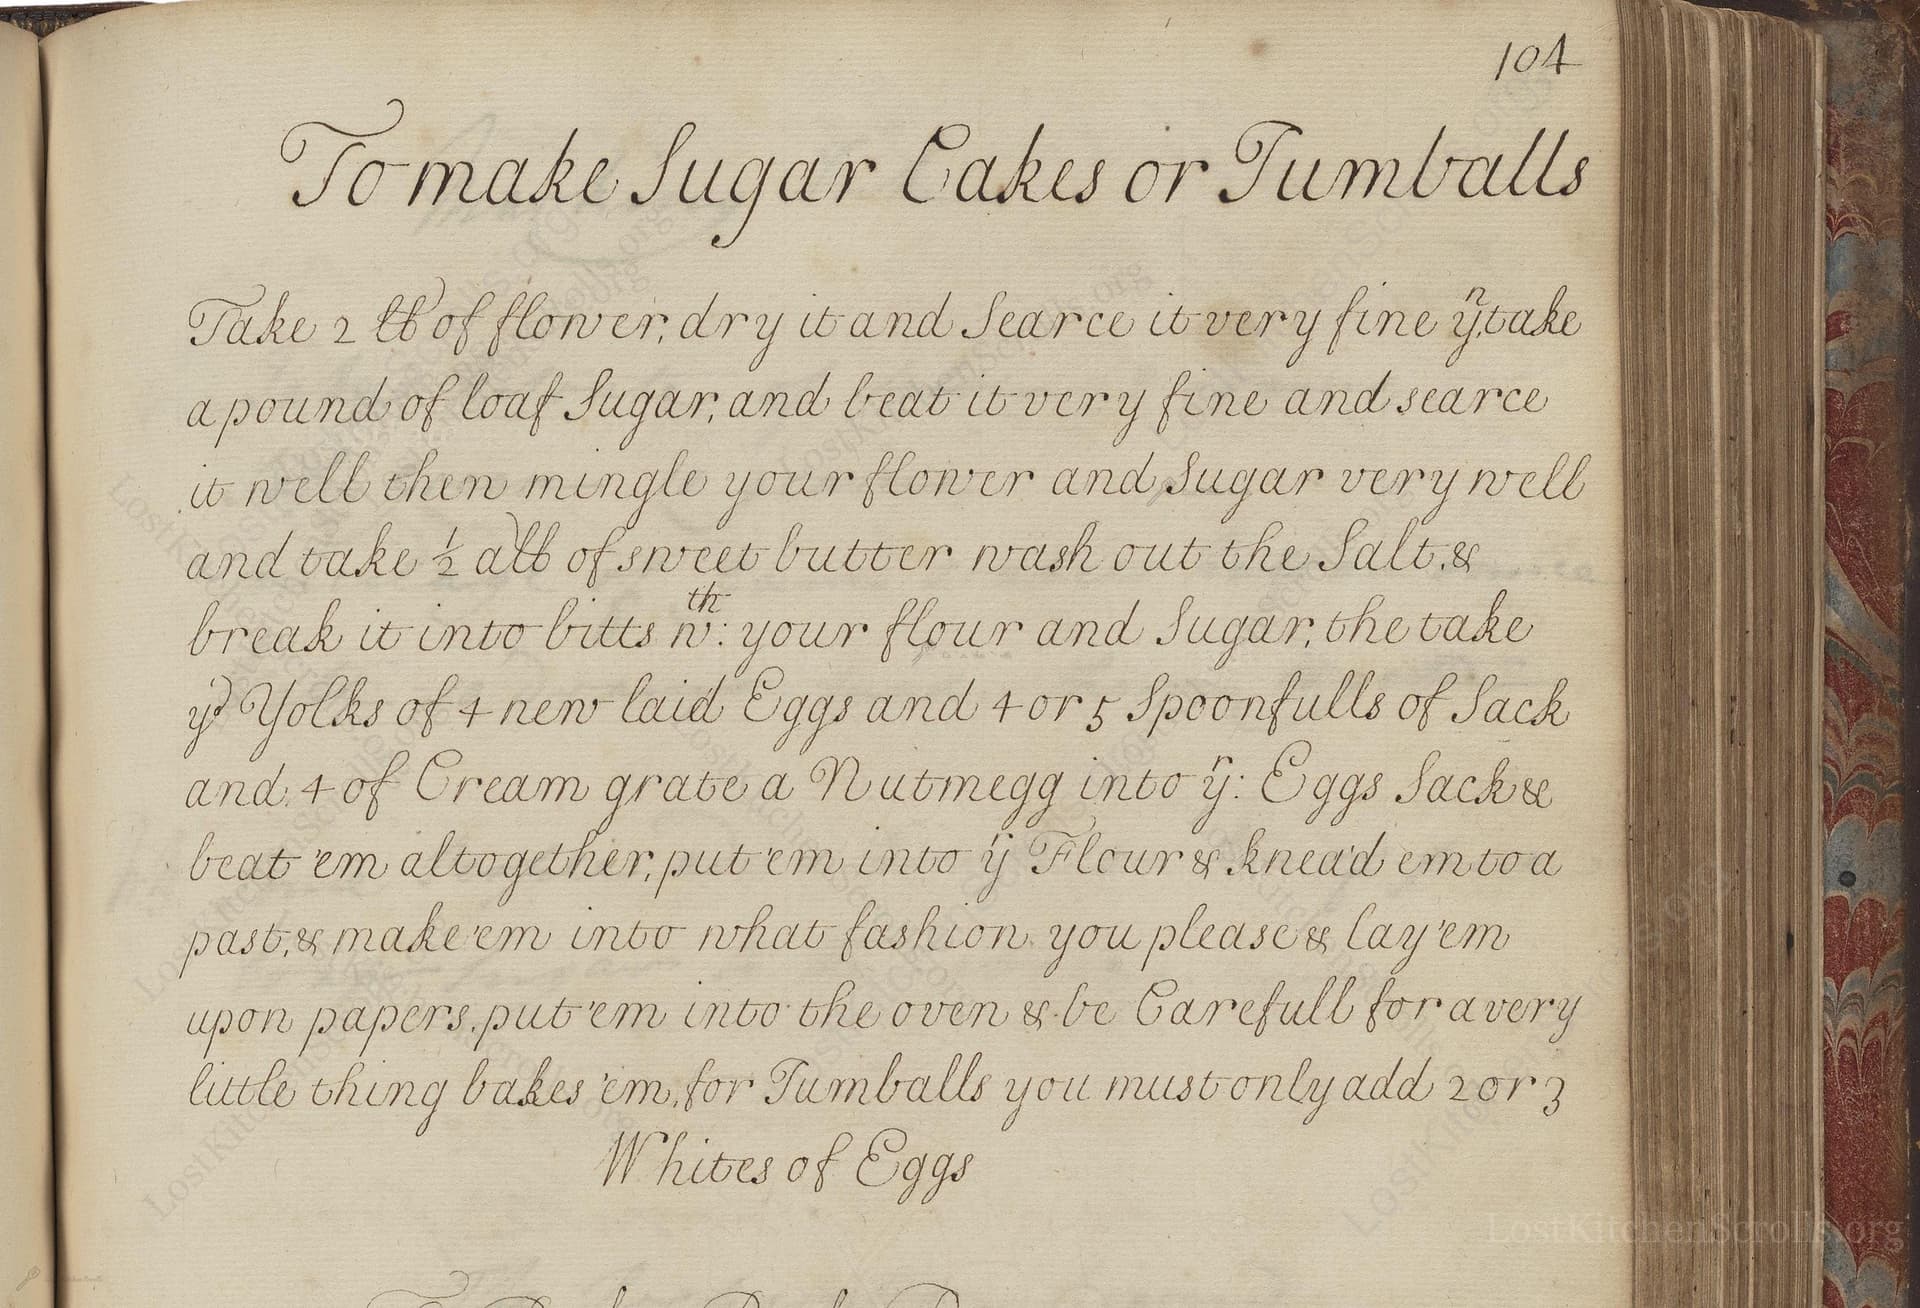 104
To make Sugar Cakes or Jumballs
Take 2 lb of flower, dry it and Searce it very fine yn, take
a pound of loaf Sugar, and beat it very fine and searce
it well then mingle your flower and Sugar very well
and take ½ a lb of sweet butter wash out the Salt, &
break it into bitts wth: your flour and Sugar, the take
ye Yolks of 4 new laid Eggs and 4 or 5 Spoonfulls of Sack
and 4 of Cream grate a Nutmegg into yr: Eggs Sack &
beat 'em altogether, put 'em into yr Flour & knead em to a
past, & make 'em into what fashion you please & lay 'em
upon papers, put 'em into the oven & be Carefull for a very
little thing bakes 'em, for Jumballs you must only add 2 or 3
Whites of Eggs
LostKitchenScrolls.org